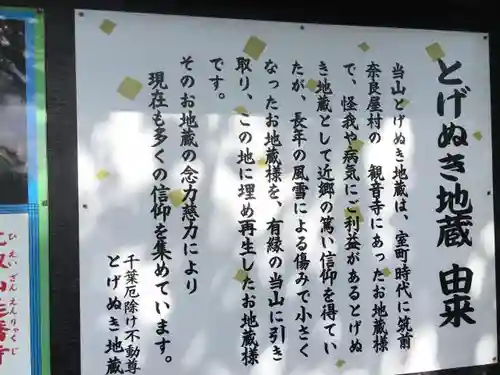 とげぬき地蔵 由来
当山とげぬき地蔵は、室町時代に筑前
奈良屋村の 観音寺にあったお地蔵様
で、怪我や病気にご利益があるとげぬ
き地蔵として近郷の篤い信仰を得てい
たが、長年の風雪による傷みで小さく
なったお地蔵様を、有縁の当山に引き
取り、この地に埋め再生したお地蔵様
です。
そのお地蔵の念力慈力により
現在も多くの信仰を集めています。
千葉厄除け不動尊
とげぬき地蔵
ひ えい ざん えんりゃくじ